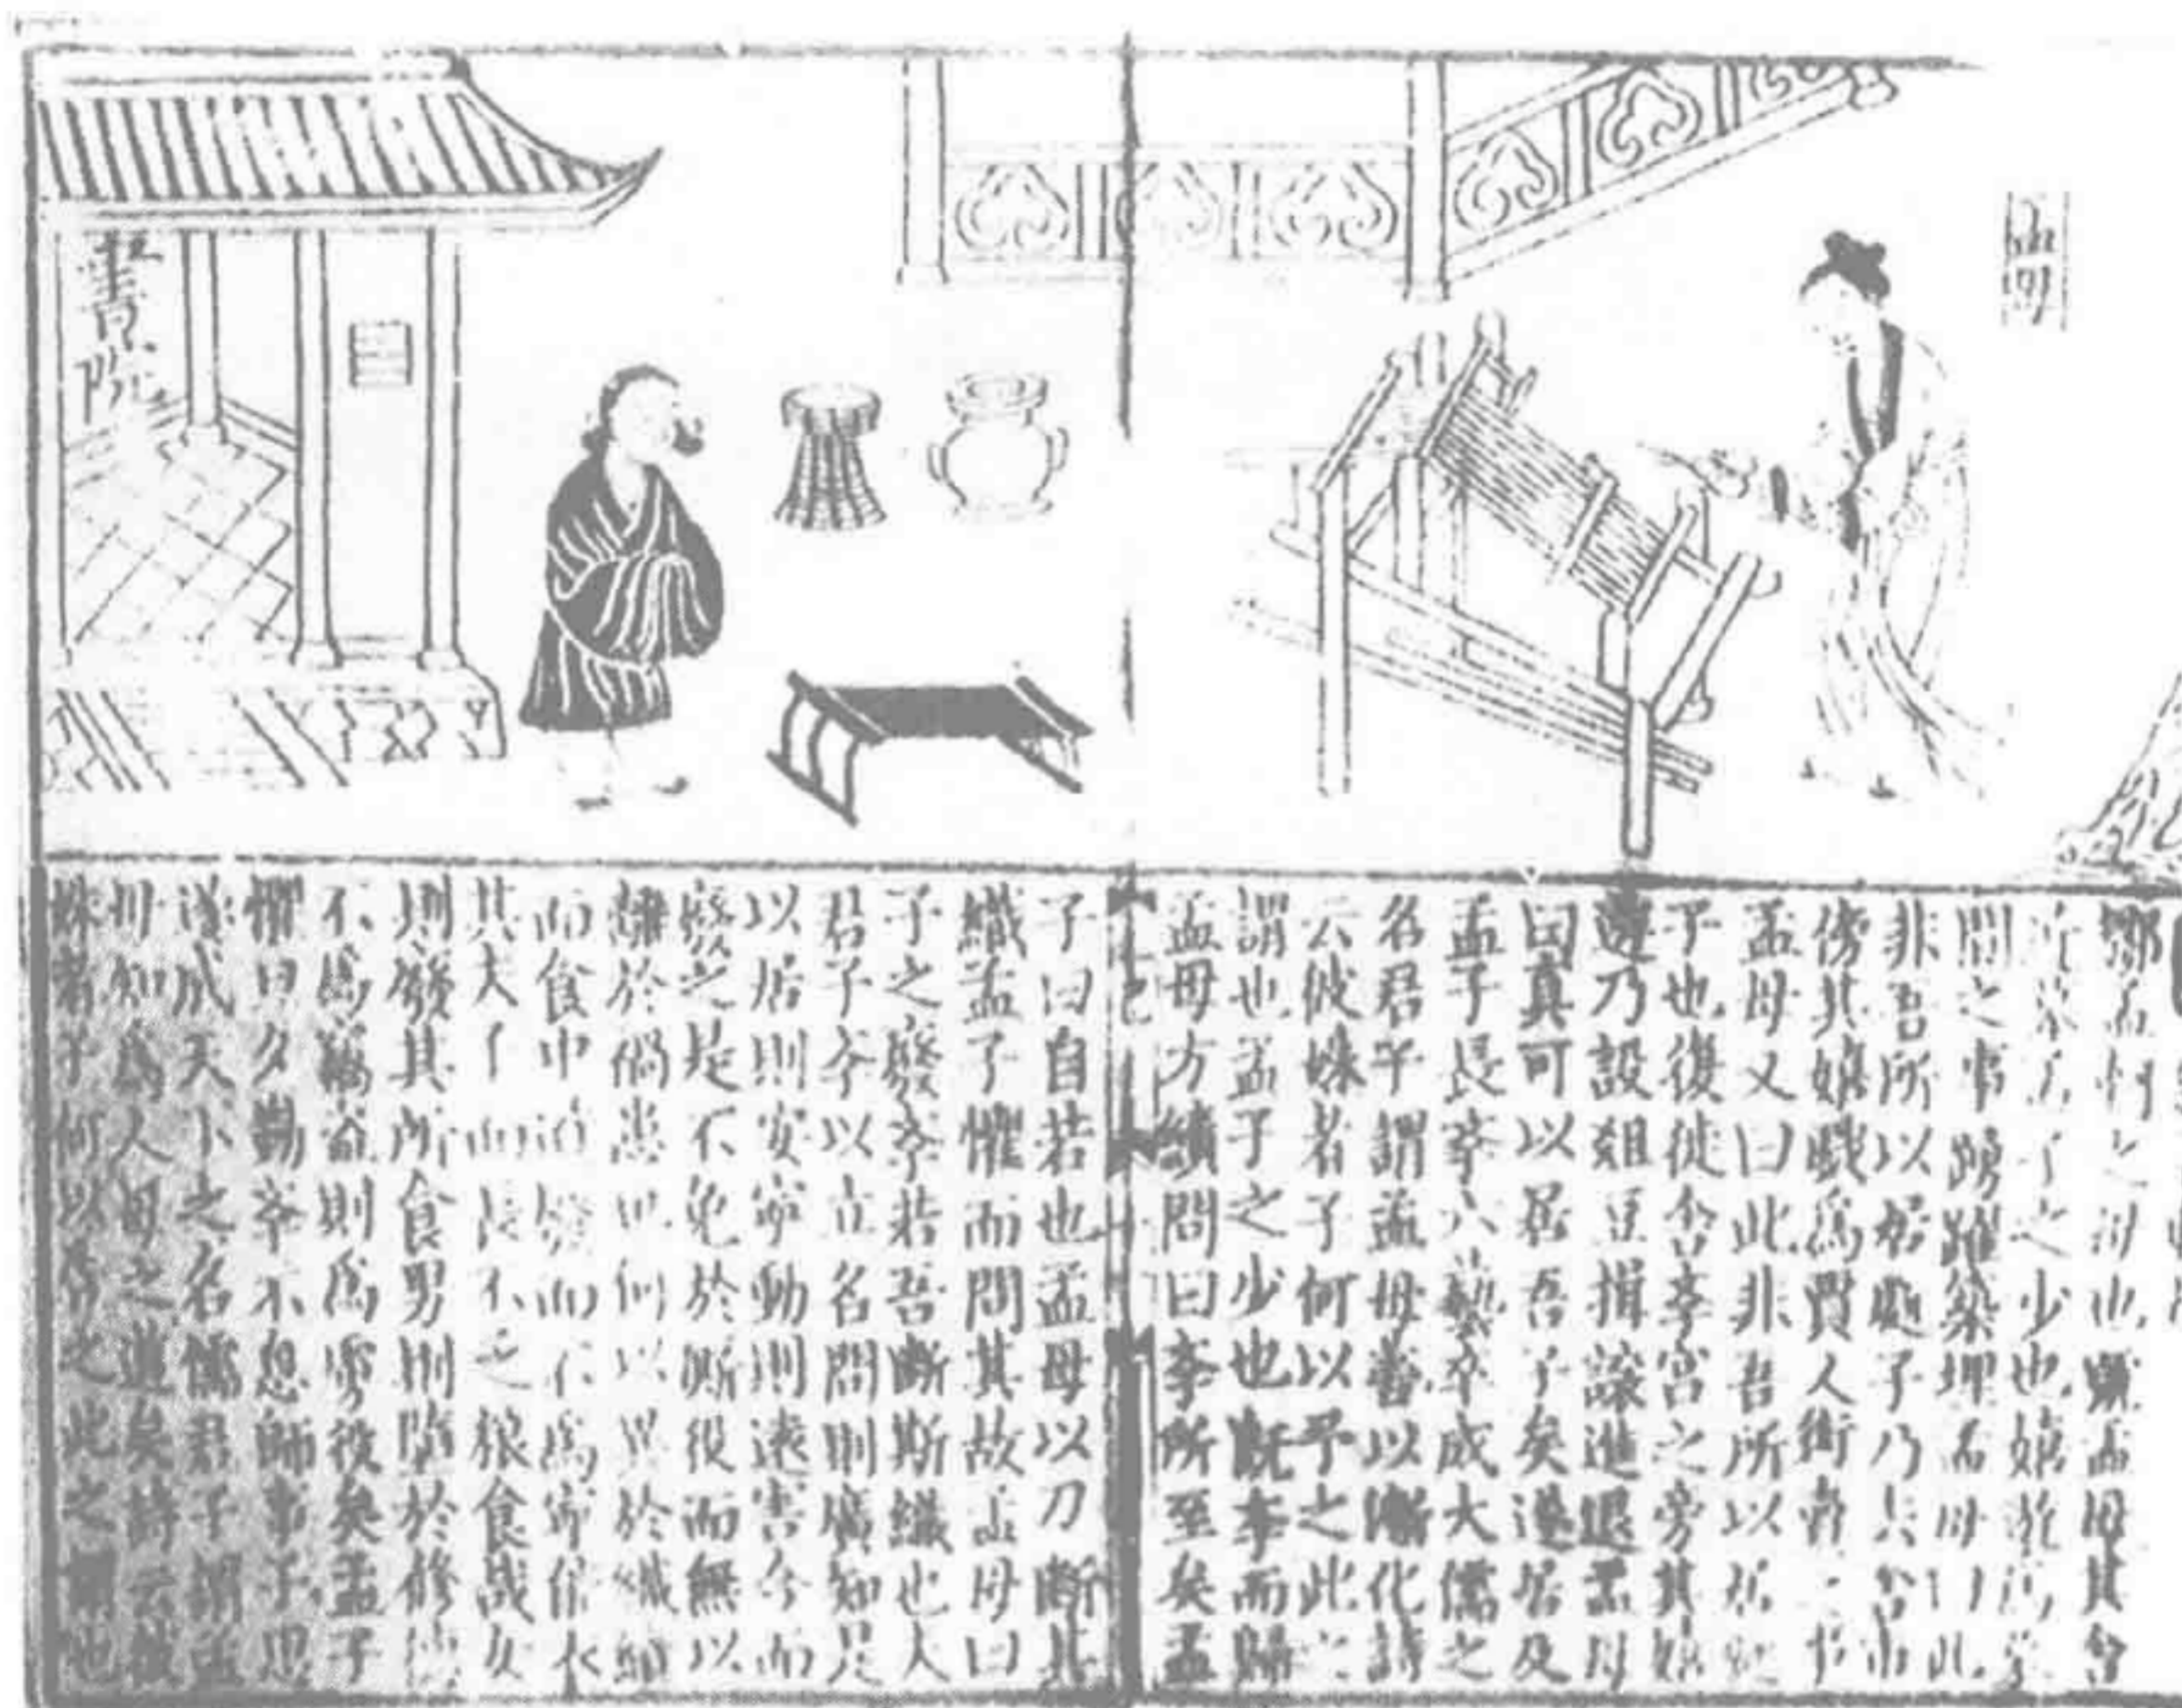 書院
鄒孟軻之母也號孟母其舍
近墓孟子之少也嬉遊為墓
間之事踴躍築埋孟母曰此
非吾所以居處子乃去舍市
傍其嬉戲為賈人衒賣之事
孟母又曰此非吾所以居處
子也復徙舍斈宮之旁其嬉
遊乃設俎豆揖讓進退孟母
曰真可以居吾子矣遂居及
孟子長斈六藝卒成大儒之
名君子謂孟母善以漸化詩
云彼姝者子何以予之此之
謂也孟子之少也既斈而歸
孟母方績問曰斈所至矣孟
子曰自若也孟母以刀斷其
織孟子懼而問其故孟母曰
子之廢斈若吾斷斯織也夫
君子斈以立名問則廣知是
以居則安寧動則遠害今而
廢之是不免於厮役而無以
離於禍患也何以異於織績
而食中道廢而不為寧能衣
其夫子而長不乏粮食哉女
則廢其所食男則墮於修德
不為竊盜則為虜役矣孟子
懼旦夕勤斈不息師事子思
遂成天下之名儒君子謂孟
母知為人母之道矣詩云彼
姝者子何以告之此之謂也